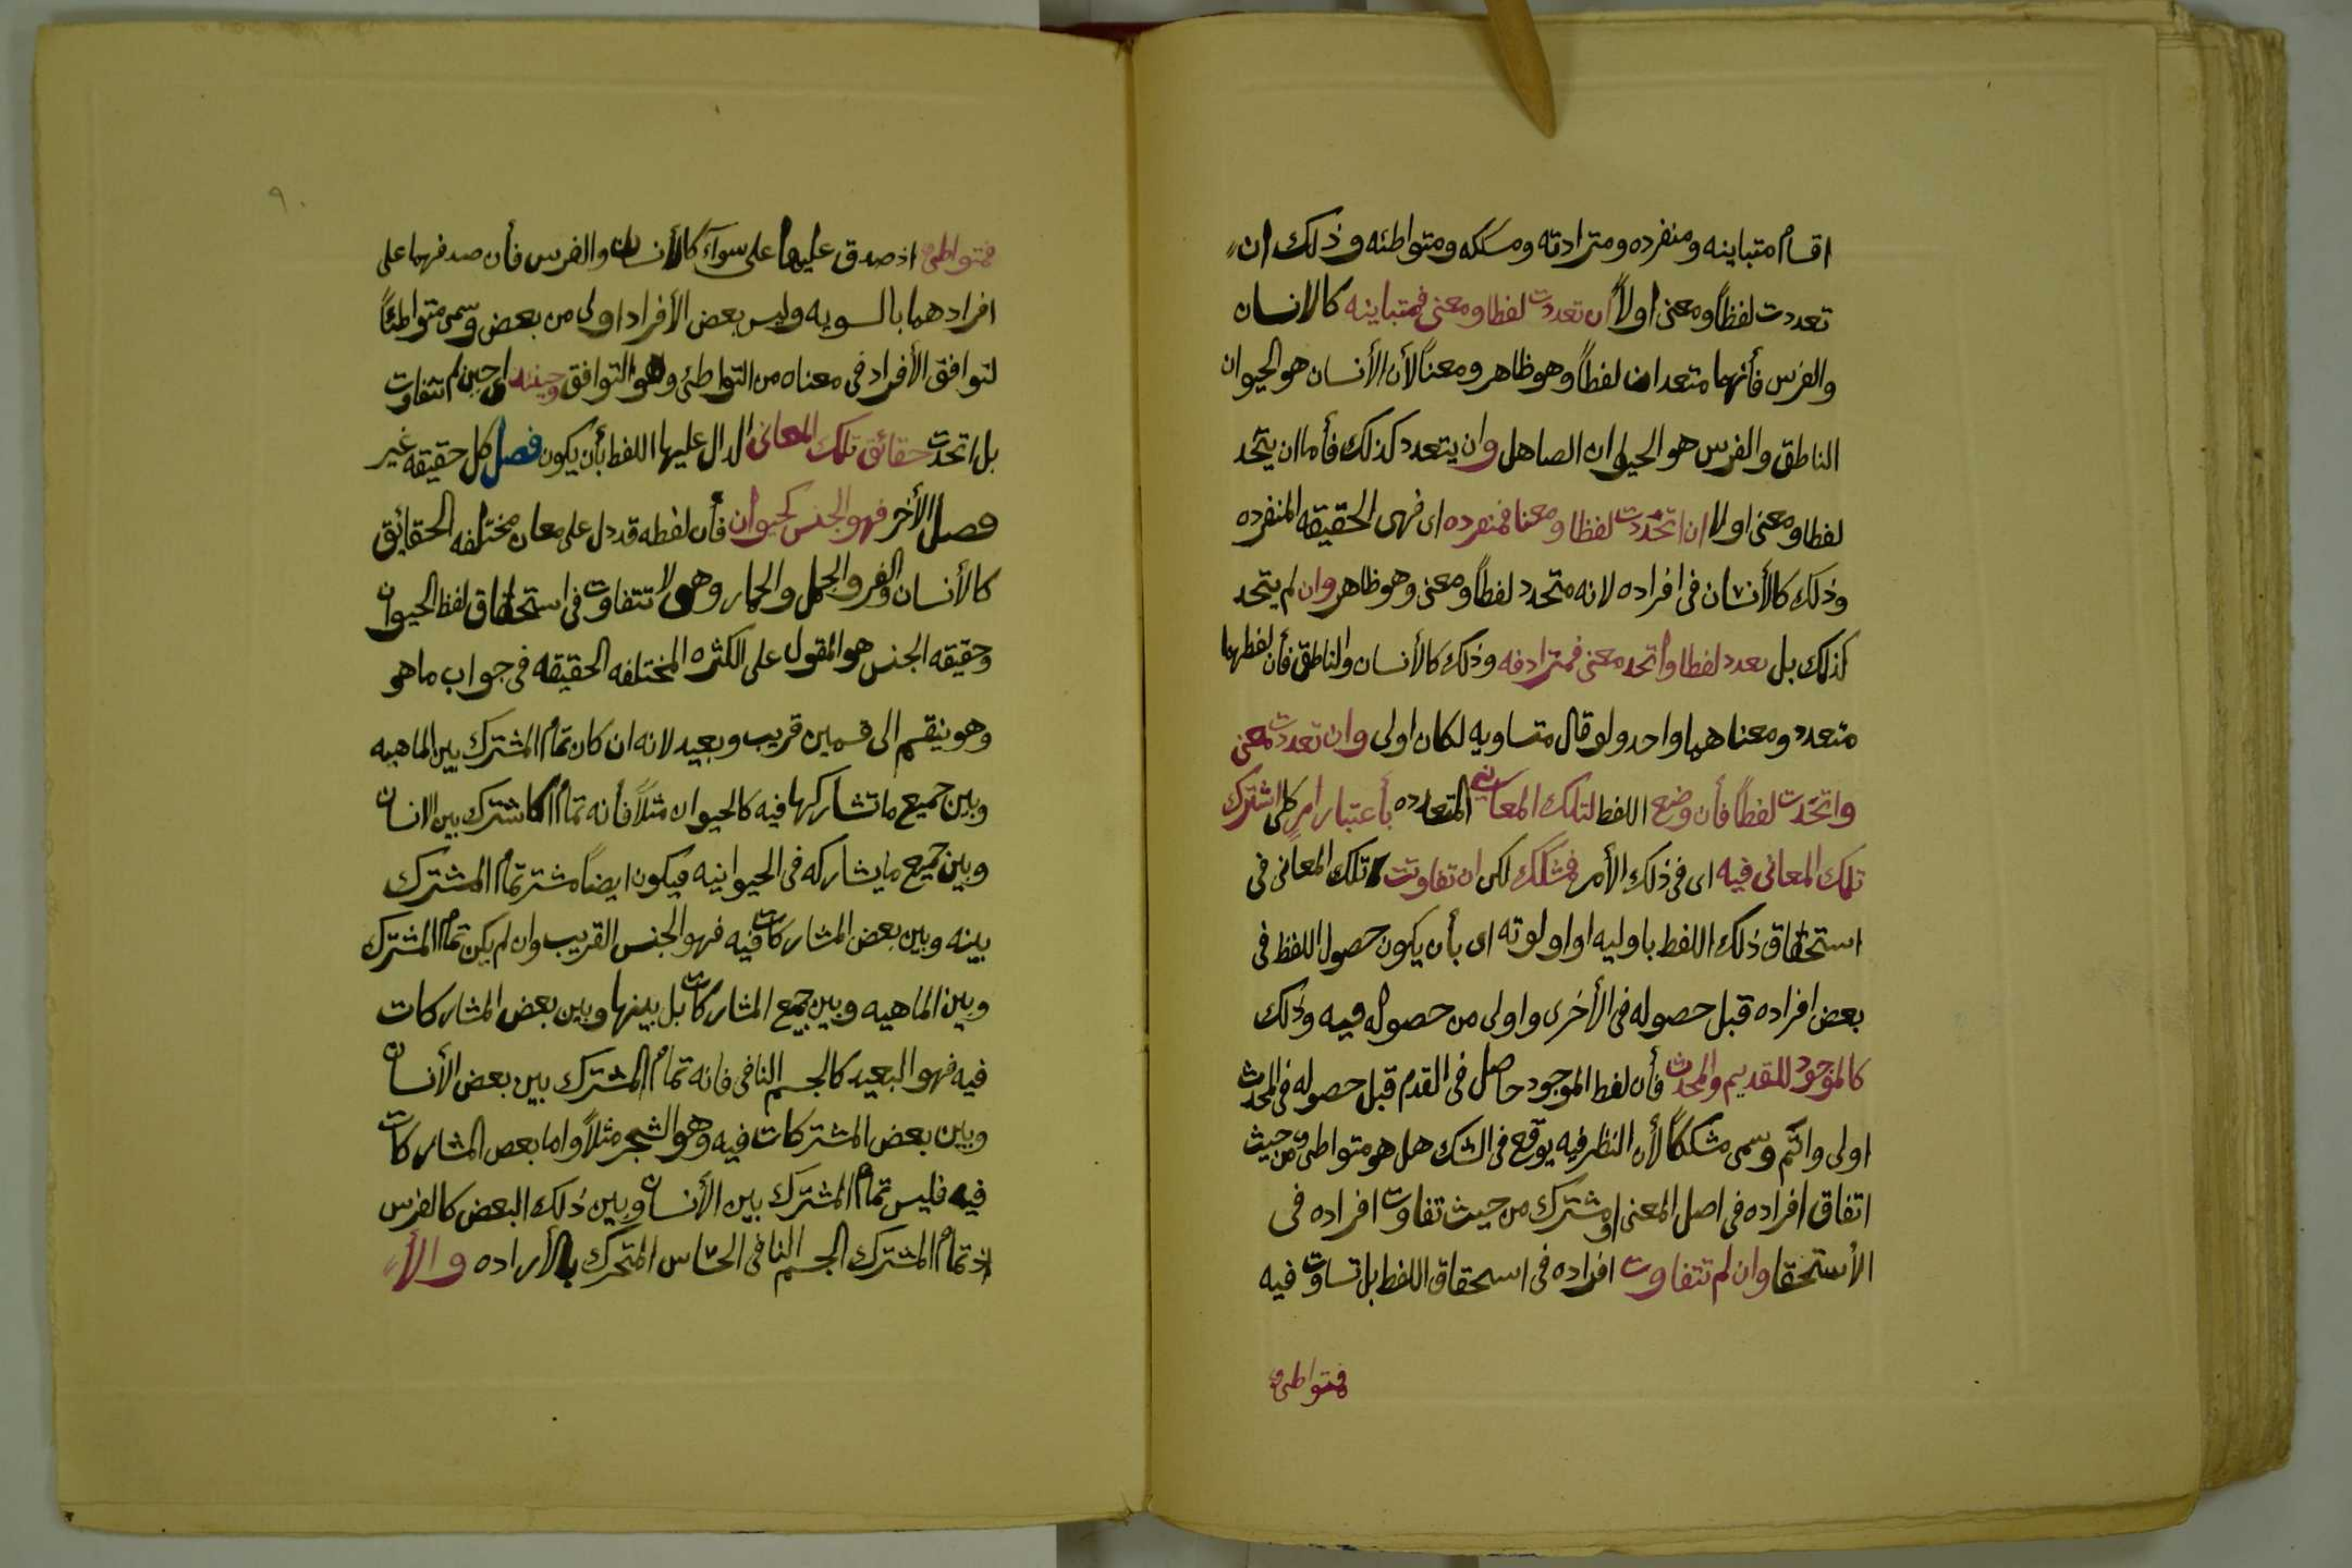 اقسام متباينه ومنفرده ومترادته ومسككه ومتواطئه وذلك ان
تعددت لفظاً ومعنى اولاً ان تعددت لفظا ومعنى فمتباينه كالانسان
والفرس فأنهما متعددان لفظاً وهو ظاهر ومعناً لأن الأنسان هو الحيوان
الناطق والفرس هو الحيوان الصاهل وان يتعدد كذلك فأما ان يتحد
لفظا ومعنى اولا ان اتحدت لفظا ومعنا فمنفرده اى فهى الحقيقه المنفرده
وذلك كالأنسان فى افراده لانه متحدد لفظاً ومعنى وهو ظاهر وان لم يتحد
كذلك بل تعدد لفظا واتحد معنى فمترادفه وذلك كالأنسان والناطق فأن لفظهما
متعدد ومعناهما واحد ولو قال متساويه لكان اولى وان تعددت معنى
واتحدت لفظاً فأن وضع اللفظ لتلك المعانى المتعدده بأعتبار امرٍ كلى اشترك
تلك المعانى فيه اى فى ذلك الأمر فمشكك لكن ان تفاوتت تلك المعانى فى
استحقاق ذلك اللفظ باوليه او اولوته اى بأن يكون حصول اللفظ فى
بعض افراده قبل حصوله فى الأخرى واولى من حصوله فيه وذلك
كالموجود للقديم والمحدث فأن لفظ الموجود حاصل فى القدم قبل حصوله فى المحدث
اولى واتم وسمى مشككاً لأن النظر فيه يوقع فى الشك هل هو متواطى من حيث
اتفاق افراده فى اصل المعنى او مشترك من حيث تفاوت افراده فى
الأستحقا وان لم تتفاوت افراده فى استحقاق اللفظ بل تساوت فيه
فمتواطىء
٩٠
فمتواطىء اذ صدق عليها على سوآء كالأنسان والفرس فأن صدقهما على
افرادهما بالسويه وليس بعض الأفراد اولى من بعض وسمى متواطئاً
لتوافق الأفراد فى معناه من التواطئ وهو التوافق وحينئذ اى حين لم تتفاوت
بل اتحدت حقائق تلك المعانى الدال عليها اللفظ بأن يكون فصل كل حقيقه غير
فصل الأخر فهو الجنس كحيوان فأن لفظه قد دل على معان مختلفه الحقايق
كالأنسان والفر والجمل والحمار وهى لا تتفاوت فى استحقاق لفظ الحيوان
وحقيقه الجنس هو المقول على الكثره المختلفه الحقيقه فى جواب ما هو
وهو ينقسم الى قسمين قريب وبعيد لانه ان كان تمام المشترك بين الماهيه
وبين جميع ما تشاركها فيه كالحيوان مثلاً فأنه تمام الاشترك بين الانسان
وبين جميع ما يشاركه فى الحيوانيه فيكون ايضاً مشتر تمام المشترك
بينه وبين بعض المشاركات فيه فهو الجنس القريب وان لم يكن تمام المشترك
وبين الماهيه وبين جميع المشاركات بل بينها وبين بعض المشاركات
فيه فهو البعيد كالجسم النافى فانه تمام المشترك بين بعض الأنسان
وبين بعض المشتركات فيه وهو الشجر مثلاً واما بعض المشاركات
فيه فليس تمام المشترك بين الأنسان وبين ذلك البعض كالفرس
اذ تمام المشترك الجسم النافى الحساس المتحرك بالأراده والأ